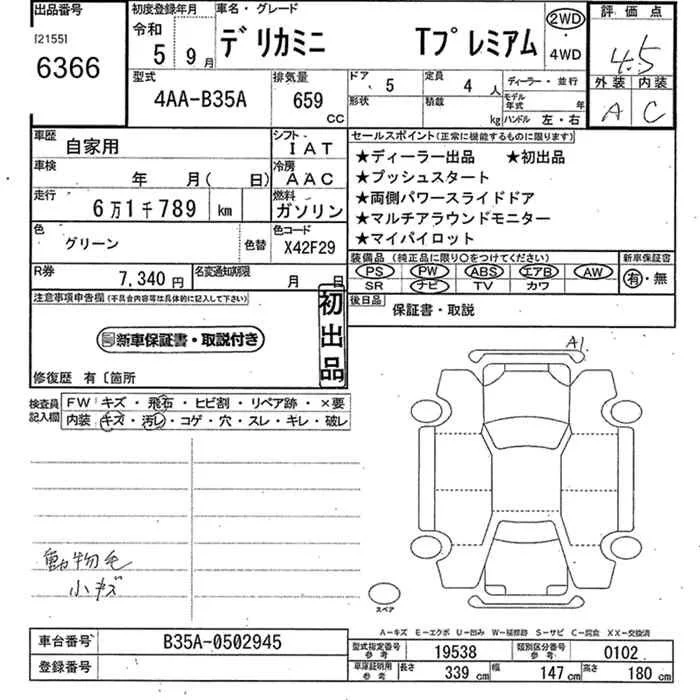 出品番号
[2155]
6366
初度登録年月
令和
5 9月
車名・グレード
デリカミニ Tプレミアム
2WD
・
4WD
評価点
4.5
外装 内装
A C
型式
4AA-B35A
排気量
659
CC
ドア 5
定員 4 人
ディーラー・並行
形状
積載 kg
モデル年式 年
ハンドル 左・右
車歴 自家用
シフト IAT
車検 年 月( 日)
冷房 AAC
走行 6万1千789 km
燃料 ガソリン
色 グリーン 色替
色コード X42F29
R券 7,340円
名変通知期限 月 日
セールスポイント(正常に機能するものに限ります)
★ディーラー出品 ★初出品
★プッシュスタート
★両側パワースライドドア
★マルチアラウンドモニター
★マイパイロット
装備品 (純正品に限り○をつけてください)
PS PW ABS エアB AW
SR ナビ TV カワ
新車保証書
有・無
後日品 保証書・取説
注意事項申告欄(不具合内容等は具体的に記入して下さい)
新車保証書・取説付き
初出品
修復歴 有〔箇所
検査員記入欄
FW キズ・飛石・ヒビ割・リペア跡・×要
内装 キズ・汚レ・コゲ・穴・スレ・キレ・破レ
動物毛
小キズ
A1
スペア
A-キズ E-エクボ U-凹み W-補修跡 S-サビ C-腐食 XX-交換済
車台番号 B35A-0502945
登録番号
型式指定番号 参考 19538
類別区分番号 参考 0102
車庫証明用 参考 長さ 339 cm 幅 147 cm 高さ 180 cm